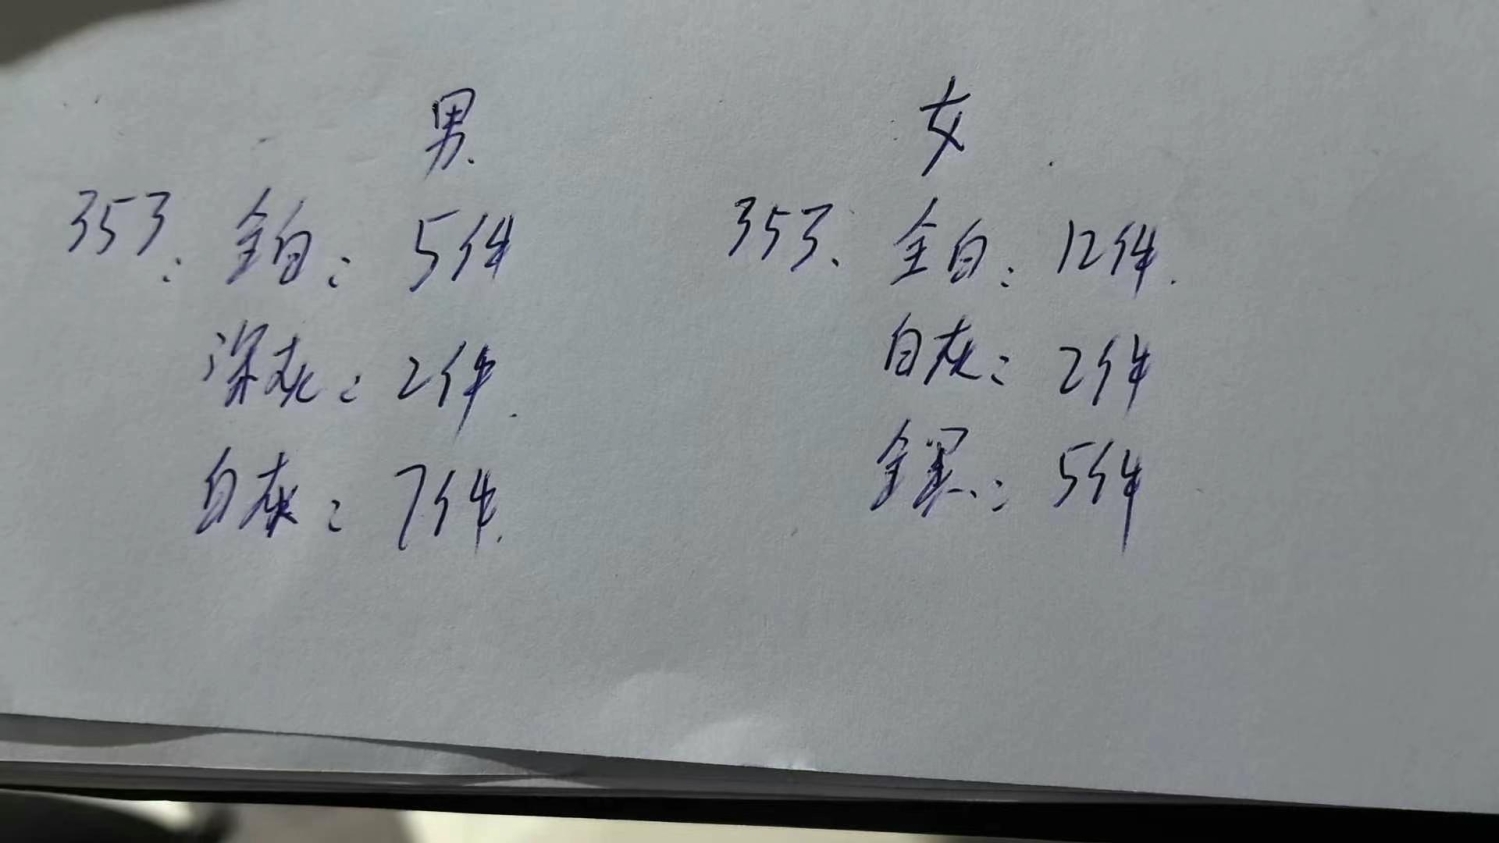 男
353: 全白: 5件
深灰: 2件.
白灰: 7件.
女
353、全白: 12件.
白灰: 2件
全黑: 5件